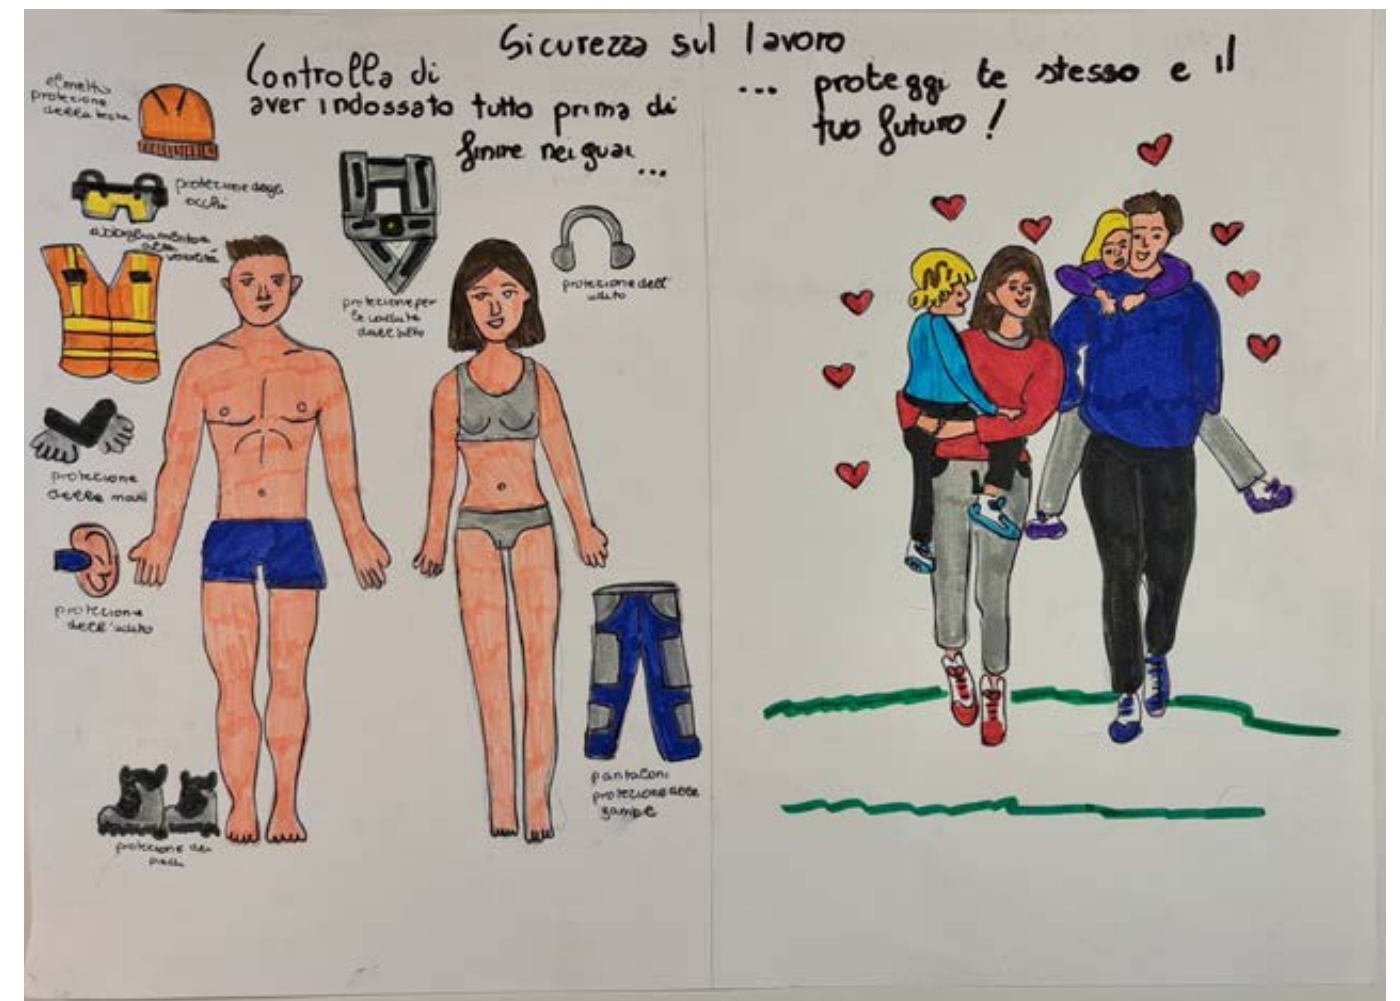 Sicurezza sul lavoro
Controlla di
aver indossato tutto prima di
finire nei guai
...
... proteggi te stesso e il
tuo futuro !
elmetto
protezione
della testa
protezione degli
occhi
abbigliamento
alta
visibilità
protezione
delle mani
protezione
dell'udito
protezione dei
piedi
protezione per
le cadute
dall'alto
protezione dell'
udito
pantaloni
protezione delle
gambe